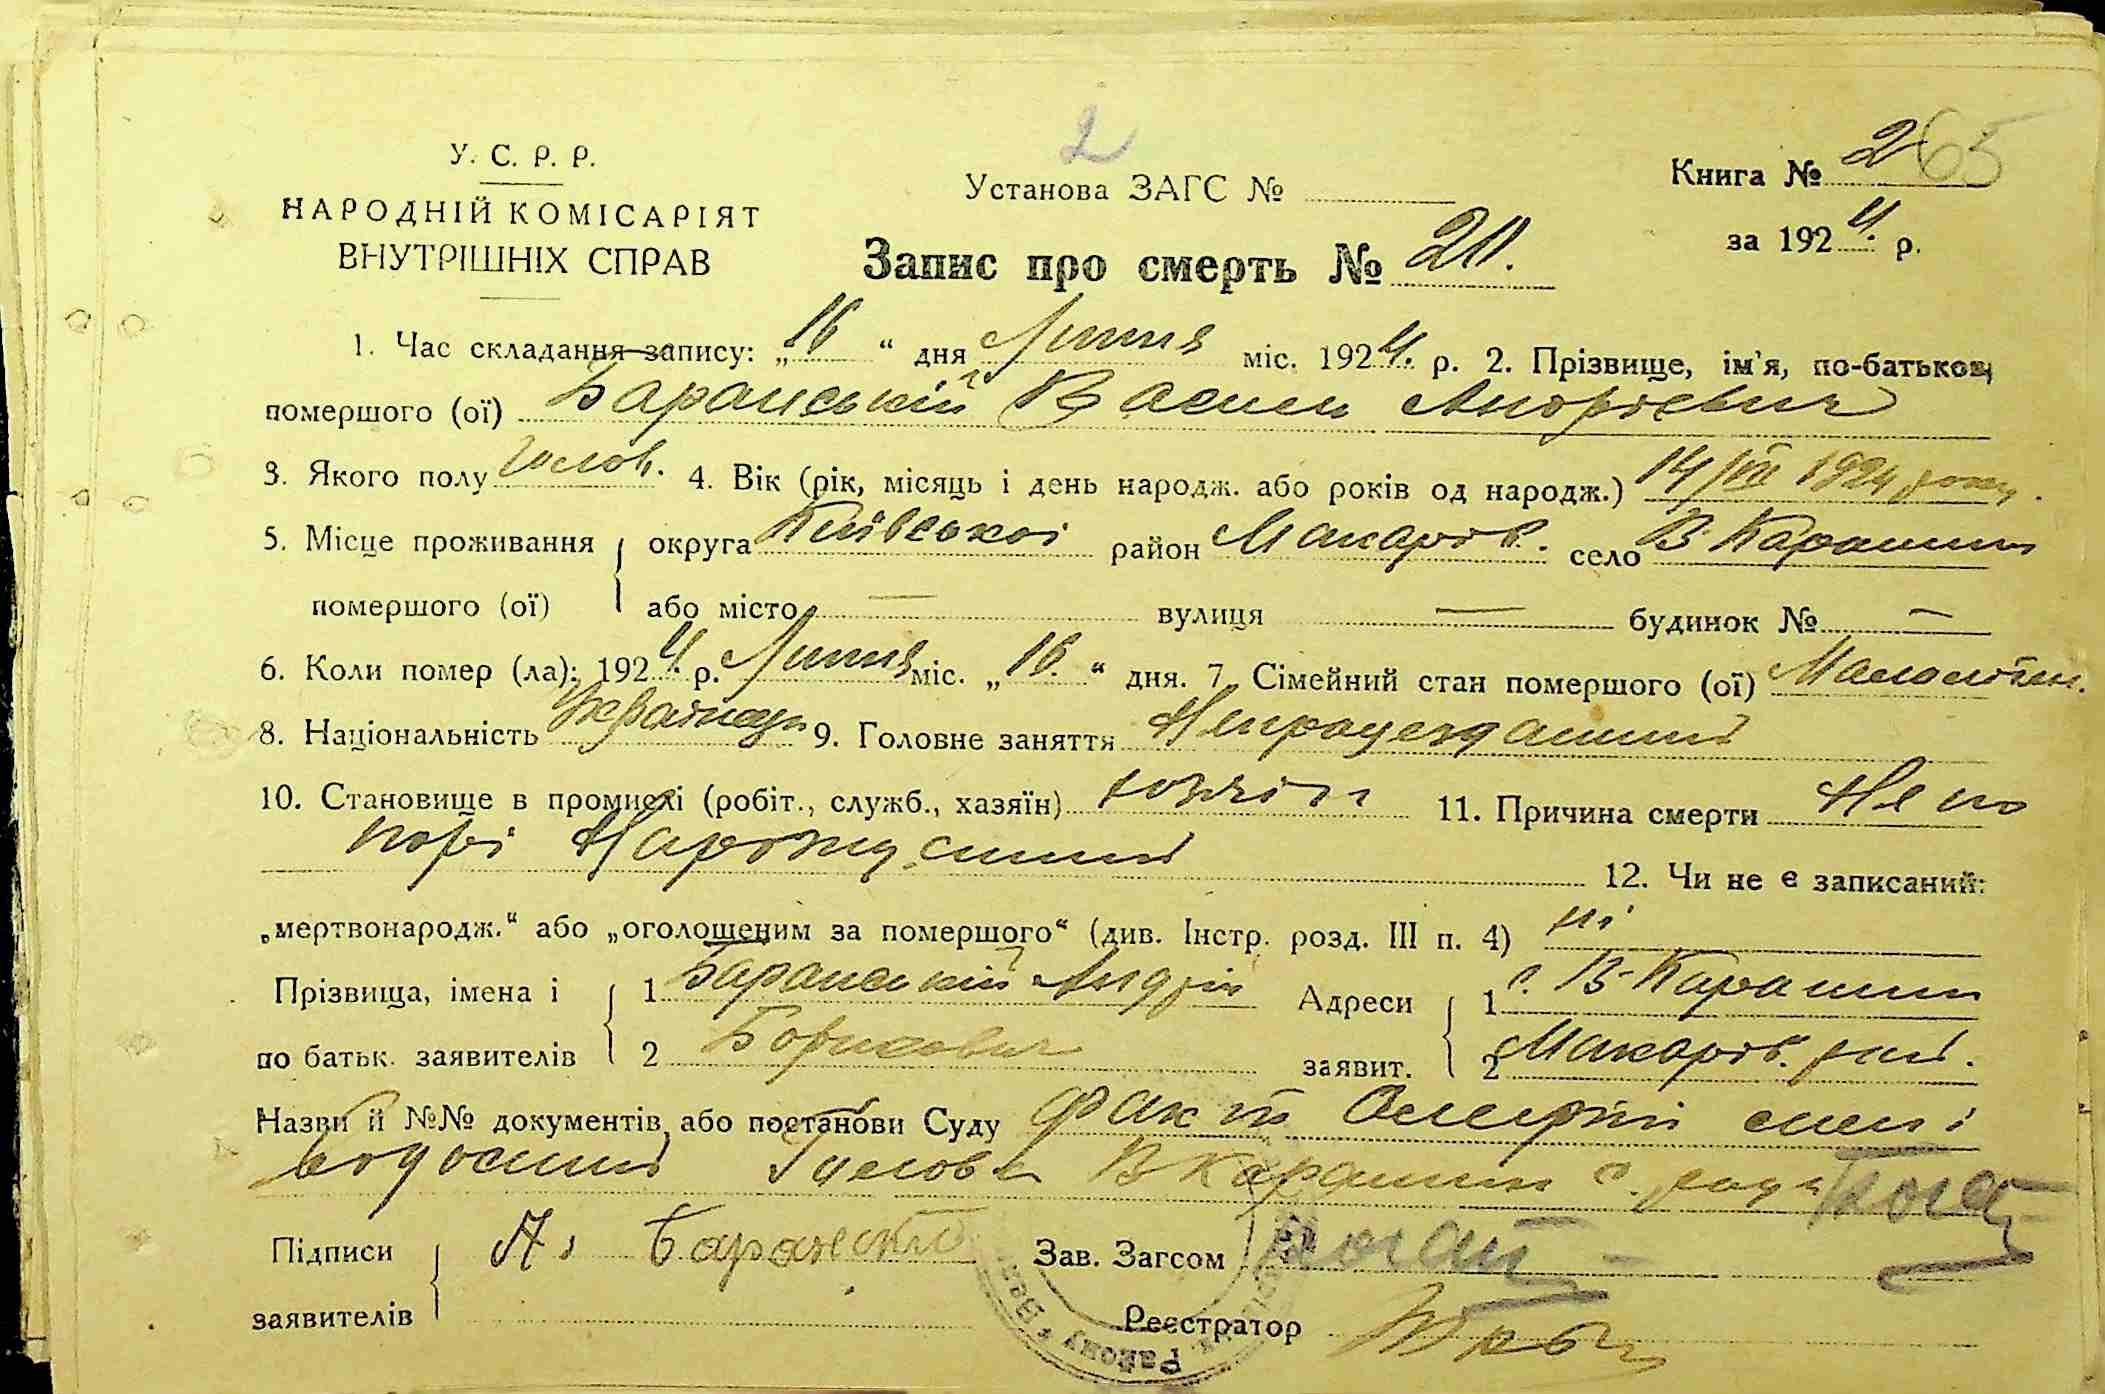 2
265
У. С. Р. Р.
НАРОДНІЙ КОМІСАРІЯТ
ВНУТРІШНІХ СПРАВ
Установа ЗАГС №
Книга № 2
за 1924 р.
Запис про смерть № 20.
1. Час складання запису: „16“ дня Липня міс. 1924. р. 2. Прізвище, ім'я, по-батькові
помершого (ої) Баранський Василь Андрієвич
3. Якого полу чолов. 4. Вік (рік, місяць і день народж. або років од народж.) 14/VII 1924 року.
5. Місце проживання округа Київської район Макарів. село В-Карашин
помершого (ої) або місто — вулиця — будинок № —
6. Коли помер (ла): 1924. р. Липня міс. „16.“ дня. 7. Сімейний стан помершого (ої) Малолітн.
8. Національність Українець 9. Головне заняття Непрацездатний
10. Становище в промислі (робіт., служб., хазяїн) 11. Причина смерти Не по
порі
12. Чи не є записаний:
„мертвонародж.“ або „оголошеним за помершого“ (див. Інстр. розд. III п. 4) ні
Прізвища, імена і 1 Баранський Андрій Адреси 1 с. В-Карашин
по батьк. заявителів 2 Борисович заявит. 2 Макарів. рай.
Назви й №№ документів, або постанови Суду Факт Смерти
Голова В Карашин с. ради
Підписи А. Баранский Зав. Загсом
заявителів Реєстратор
Району